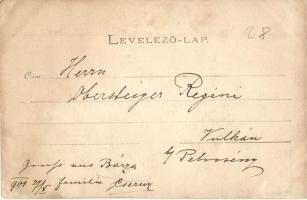 28
LEVELEZŐ-LAP.
Czim Herrn
Obersteiger Regéni
Vulkán
Petrozsény
Gruss aus Bárza
901 familie